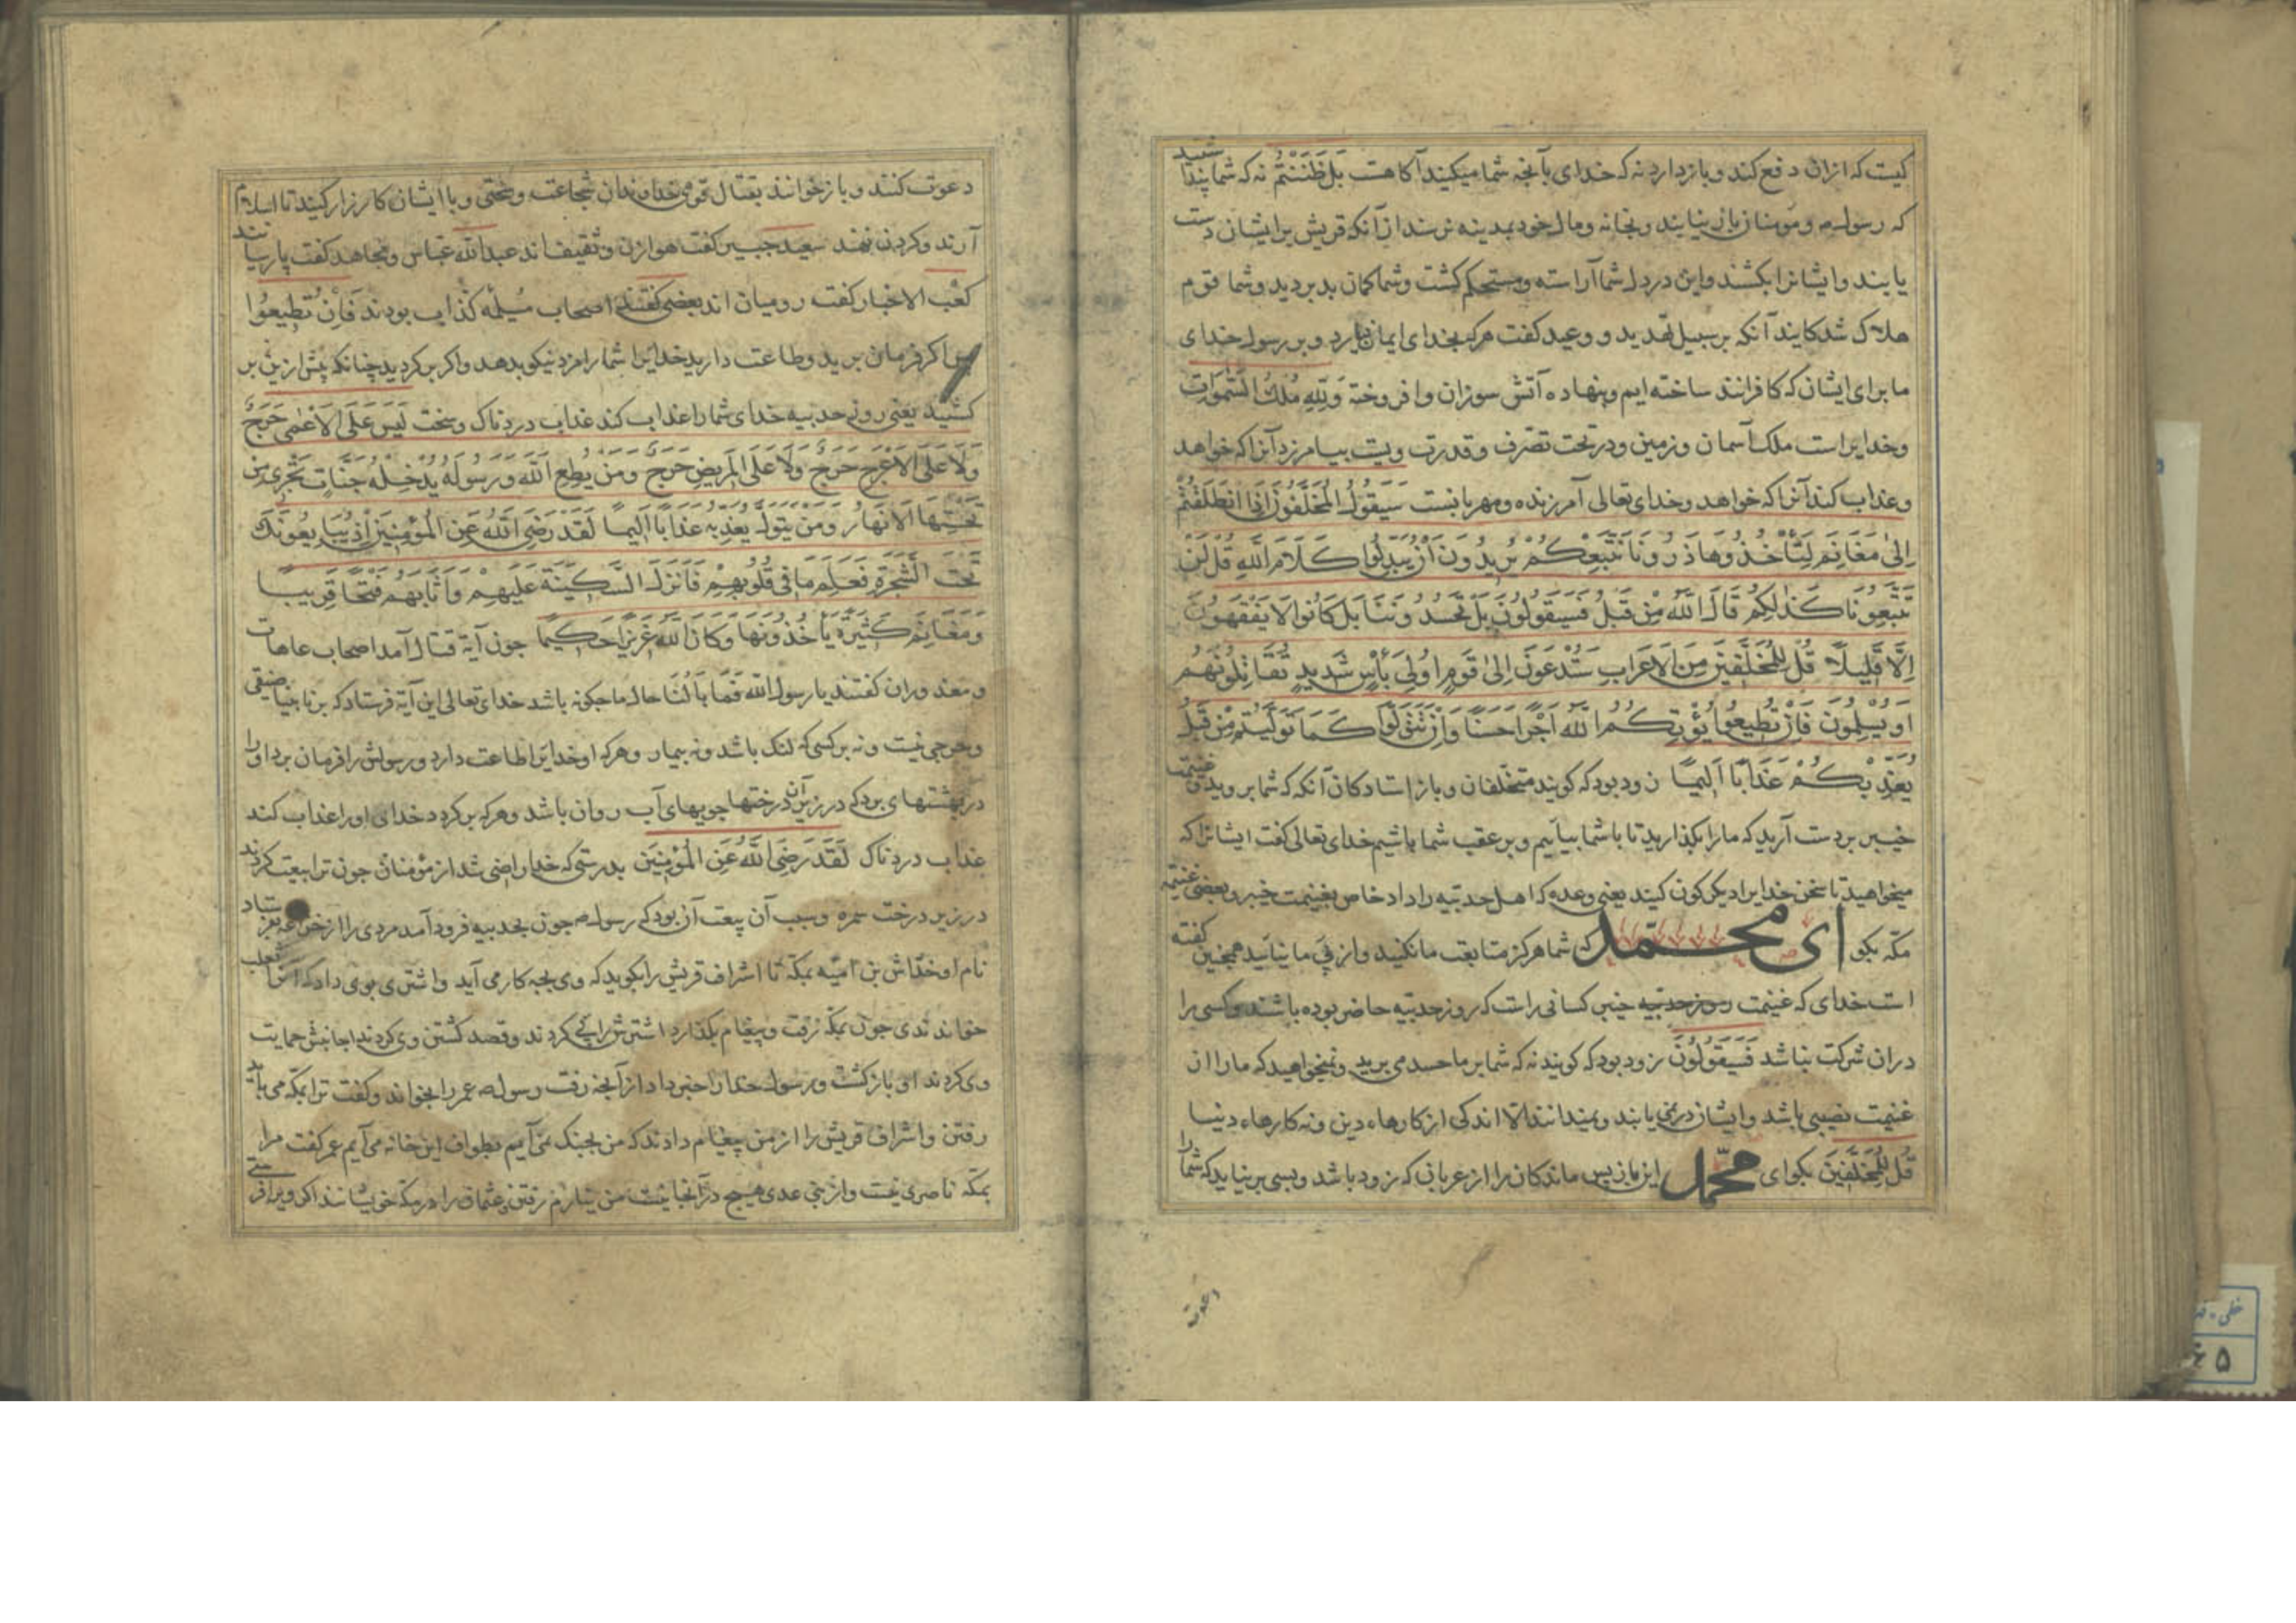 کیست که ازان دفع کند و باز دارد نه که خدای بآنچه شما میکنید آکاهست بَل ظَنَنْتُمْ نه که شما پندا شتید
که رسول ص و مومنان باز نیایند و بخانه و مال خود بمدینه نرسند از آنکه قریش بر ایشان دست
یابند و ایشانرا بکشند و این در دل شما آراسته و مستحکم کشت و شما کمان بد بردید و شما قوم
هلاک شدکانید آنکه بر سبیل تهدید و وعید کفت هرکه بخدای ایمان نیارد و بر رسول خدای
ما برای ایشان که کافرانند ساخته ایم و بنهاده آتش سوزان و افروخته وَلِلّهِ مُلکُ السَّمٰوَاتِ
و خدایراست ملک آسمان و زمین و در تحت تصرّف و قدرت ویست بیامرزد آنرا که خواهد
و عذاب کند آنرا که خواهد و خدای تعالی آمرزنده و مهربانست سَیَقُولُ المُخَلَّفُونَ اِذَا انطَلَقْتُمْ
اِلیٰ مَغَانِمَ لِتَأْخُذُوهَا ذَرُونَا نَتَّبِعْکُمْ یُریدُونَ اَنْ یُبَدِّلُوا کَلَامَ اللّهِ قُل لَنْ
تَتَّبِعُونَا کَذٰلِکُمْ قَالَ اللّهُ مِنْ قَبْلُ فَسَیَقُولُونَ بَلْ تَحْسُدُونَنَا بَل کَانُوا لَا یَفْقَهُونَ
اِلَّا قَلِیلاً قُلْ لِلْمُخَلَّفِینَ مِنَ الاَعرَابِ سَتُدْعَوْنَ اِلیٰ قَوْمٍ اُولِی بَأْسٍ شَدِیدٍ تُقَاتِلُونَهُمْ
اَوْ یُسْلِمُونَ فَاِنْ تُطِیعُوا یُؤْتِکُمُ اللّهُ اَجْرًا حَسَنًا وَاِنْ تَتَوَلَّوْا کَمَا تَوَلَّیْتُمْ مِنْ قَبْلُ
یُعَذِّبْکُمْ عَذَابًا اَلِیمًا زود بود که کویند متخلّفان و باز استادکان آنکه که شما بروید و غنیمت
خیبر بر دست آرید که ما را بگذارید تا با شما بیاییم و بر عقب شما باشیم خدای تعالی کفت ایشانرا که
میخواهید تا سخن خدایرا دیکرکون کنید یعنی وعده که اهل حدیبیه را داد خاص بغنیمت خیبر و بعضی غنیمه
مکّه بکو ای محمّد که شما هرکز متابعت ما نکنید و از پی ما نیایید همچنین کفته
است خدای که غنیمت خیبر کسانی راست که روز حدیبیه حاضر بوده باشند و کسی را
دران شرکت نباشد فَسَیَقُولُونَ زود بود که کویند نه که شما بر ما حسد می برید و نمیخواهید که ما را از
غنیمت نصیبی باشد و ایشان در نمی یابند و نمیدانند الّا اندکی از کارهاء دین و نه کارهاء دنیا
قُل لِلْمُخَلَّفِینَ بکو ای محمّد این باز پس ماندکان را از عربان که زود باشد و بسی بر نیاید که شما را
دعوت
دعوت کنند و باز خوانند بقتال قومی خداوندان شجاعت و سختی و با ایشان کارزار کنید تا اسلام
آرند و کردن نهند سعید جبیر کفت هوازن و ثقیف اند عبدالله عباس و مجاهد کفت پارسیانند
کعب الاخبار کفت رومیان اند بعضی کفتند اصحاب مسیلمه کذاب بودند فَاِنْ تُطِیعُوا
پس اکر فرمان برید و طاعت دارید خدایرا شما را مزد نیکو بدهد و اکر بر کردید چنانکه پیش ازین بر
کشتید یعنی روز حدیبیه خدای شما را عذاب کند عذاب دردناک و سخت لَیسَ عَلَی الاَعْمٰی حَرَجٌ
وَلَا عَلَی الاَعْرَجِ حَرَجٌ وَلَا عَلَی المَرِیضِ حَرَجٌ وَمَنْ یُطِعِ اللّهَ وَرَسُولَهُ یُدْخِلْهُ جَنَّاتٍ تَجْرِی مِن
تَحْتِهَا الاَنْهَارُ وَمَنْ یَتَوَلَّ یُعَذِّبْهُ عَذَابًا اَلِیمًا لَقَدْ رَضِیَ اللّهُ عَنِ المُؤْمِنِینَ اِذْ یُبَایِعُونَکَ
تَحْتَ الشَّجَرَةِ فَعَلِمَ مَا فِی قُلُوبِهِمْ فَاَنْزَلَ السَّکِینَةَ عَلَیْهِمْ وَاَثَابَهُمْ فَتْحًا قَرِیبًا
وَمَغَانِمَ کَثِیرَةً یَأْخُذُونَهَا وَکَانَ اللّهُ عَزِیزًا حَکِیمًا چون آیة قتال آمد اصحاب عاهات
و معذوران کفتند یا رسول الله فَمَا بَالُنَا حال ما چکونه باشد خدای تعالی این آیة فرستاد که بر نابینا ضیقی
و حرجی نیست و نه بر کسی که لنک باشد و نه بیمار و هرکه او خدایرا طاعت دارد و رسولش را فرمان برد او را
در بهشتهای برد که در زیر آن درختها جویهای آب روان باشد و هرکه بر کردد خدای او را عذاب کند
عذاب دردناک لَقَدْ رَضِیَ اللّهُ عَنِ المُؤمِنِینَ بدرستی که خدا راضی شد از مؤمنان چون ترا بیعت کردند
در زیر درخت سمره و سبب آن بیعت آن بود که رسول ص چون بحدیبیه فرود آمد مردی را از خزاعه بفرستاد
نام او خدّاش بن امیّه بمکّه تا اشراف قریش را بکوید که وی بچه کار می آید و اشتری بوی داد که آنرا ثعلب
خواندندی چون بمکّه رفت و پیغام بگذارد اشترش را پی کردند و قصد کشتن وی کردند حمایت
وی کردند او باز کشت و رسول خدا را خبر داد از آنچه رفت رسول ص عمر را بخواند و کفت ترا بمکّه می باید
رفتن و اشراف قریش را از من پیغام دادند که من بجنک نمی آیم بطواف این خانه می آیم عمر کفت مرا
بمکّه ناصری نیست و از بنی عدی هیچ در آنجا نیست من نیارم رفتن عثمان را در مکّه خویشانند اکر ویرا فرستی